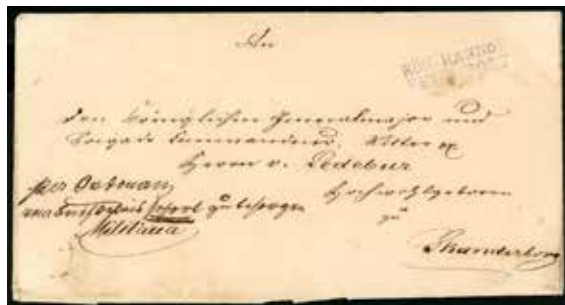 An
KÖN: HANNOV
FELDPOST
den Königlichen Generalmajor und
Brigade Commandeur, Ritter pp
Herrn v. Ledebur
Hochwohlgeboren
zu
Skanderborg
per
sofort zu besorgen
Militaria